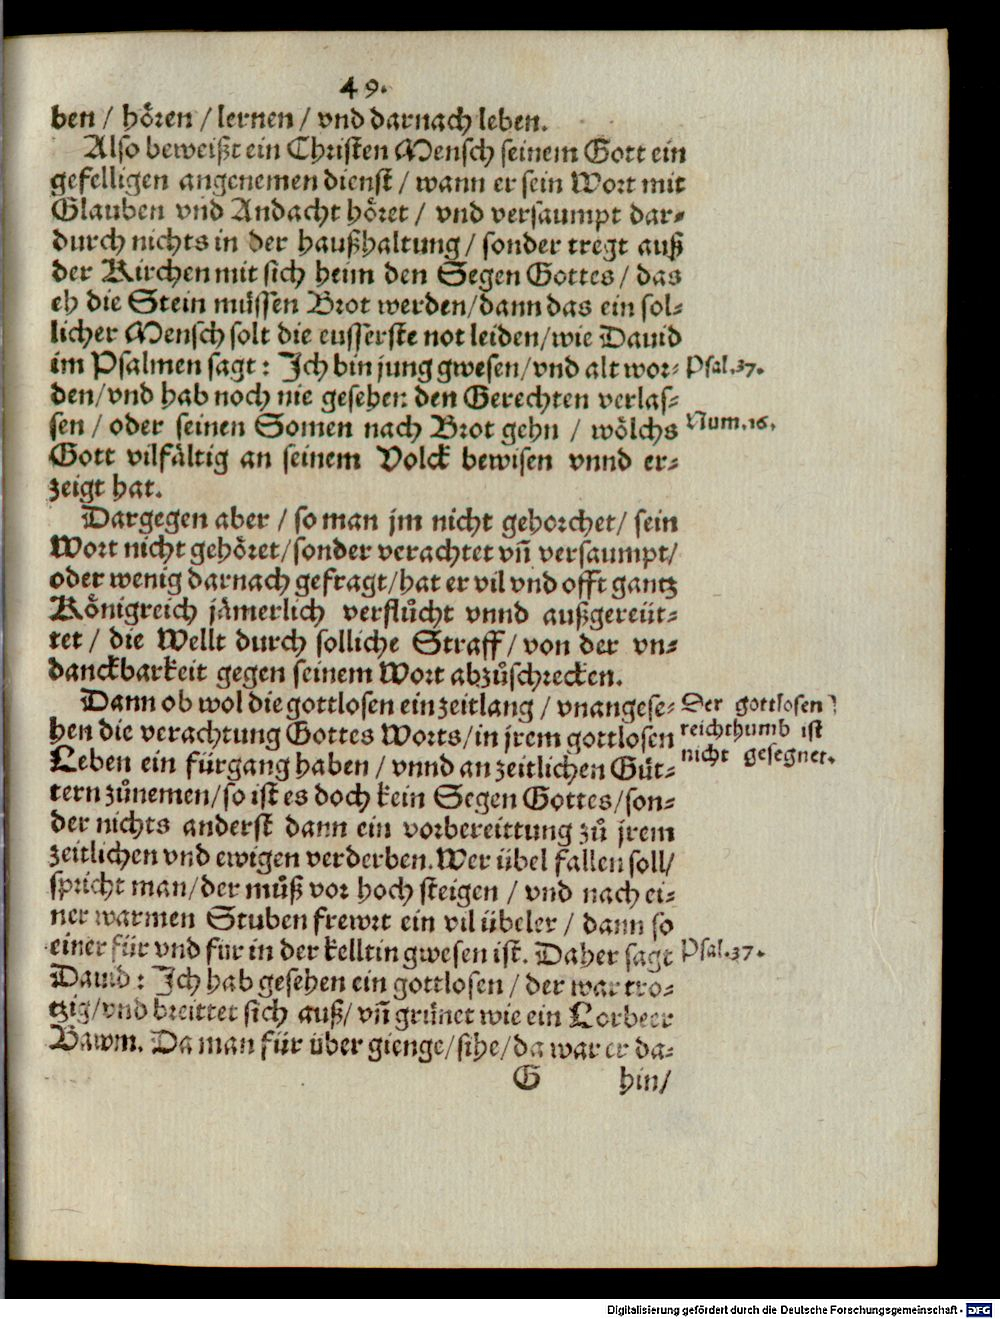 49.
ben / hören / lernen / vnd darnach leben.
Also beweißt ein Christen Mensch seinem Gott ein
gefelligen angenemen dienst / wann er sein Wort mit
Glauben vnd Andacht höret / vnd versaumpt dar-
durch nichts in der haußhaltung / sonder tregt auß
der Kirchen mit sich heim den Segen Gottes / das
eh die Stein müssen Brot werden / dann das ein sol-
licher Mensch solt die eusserste not leiden / wie Dauid
im Psalmen sagt : Ich bin jung gwesen / vnd alt wor-
Psal. 37.
den / vnd hab noch nie gesehen den Gerechten verlas-
sen / oder seinen Somen nach Brot gehn / wölchs
Num. 16.
Gott vilfältig an seinem Volck bewisen vnnd er-
zeigt hat.
Dargegen aber / so man jm nicht gehorchet / sein
Wort nicht gehöret / sonder verachtet vn̄ versaumpt /
oder wenig darnach gefragt / hat er vil vnd offt gantz
Königreich jämerlich verflůcht vnnd außgereüt-
tet / die Wellt durch solliche Straff / von der vn-
danckbarkeit gegen seinem Wort abzůschrecken.
Dann ob wol die gottlosen ein zeitlang / vnangese-
Der gottlosen
hen die verachtung Gottes Worts / in jrem gottlosen
reichthumb ist
Leben ein fürgang haben / vnnd an zeitlichen Güt-
nicht gesegnet.
tern zůnemen / so ist es doch kein Segen Gottes / son-
der nichts anderst dann ein vorbereittung zů jrem
zeitlichen vnd ewigen verderben. Wer übel fallen soll /
spricht man / der můß vor hoch steigen / vnd nach ei-
ner warmen Stuben frewrt ein vil übeler / dann so
einer für vnd für in der kelltin gwesen ist. Daher sagt
Psal. 37.
Dauid : Ich hab gesehen ein gottlosen / der war tro-
tzig / vnd breittet sich auß / vn̄ grünet wie ein Lorbeer
Bawm. Da man für über gienge / sihe / da war er da-
G hin /
Digitalisierung gefördert durch die Deutsche Forschungsgemeinschaft - DFG